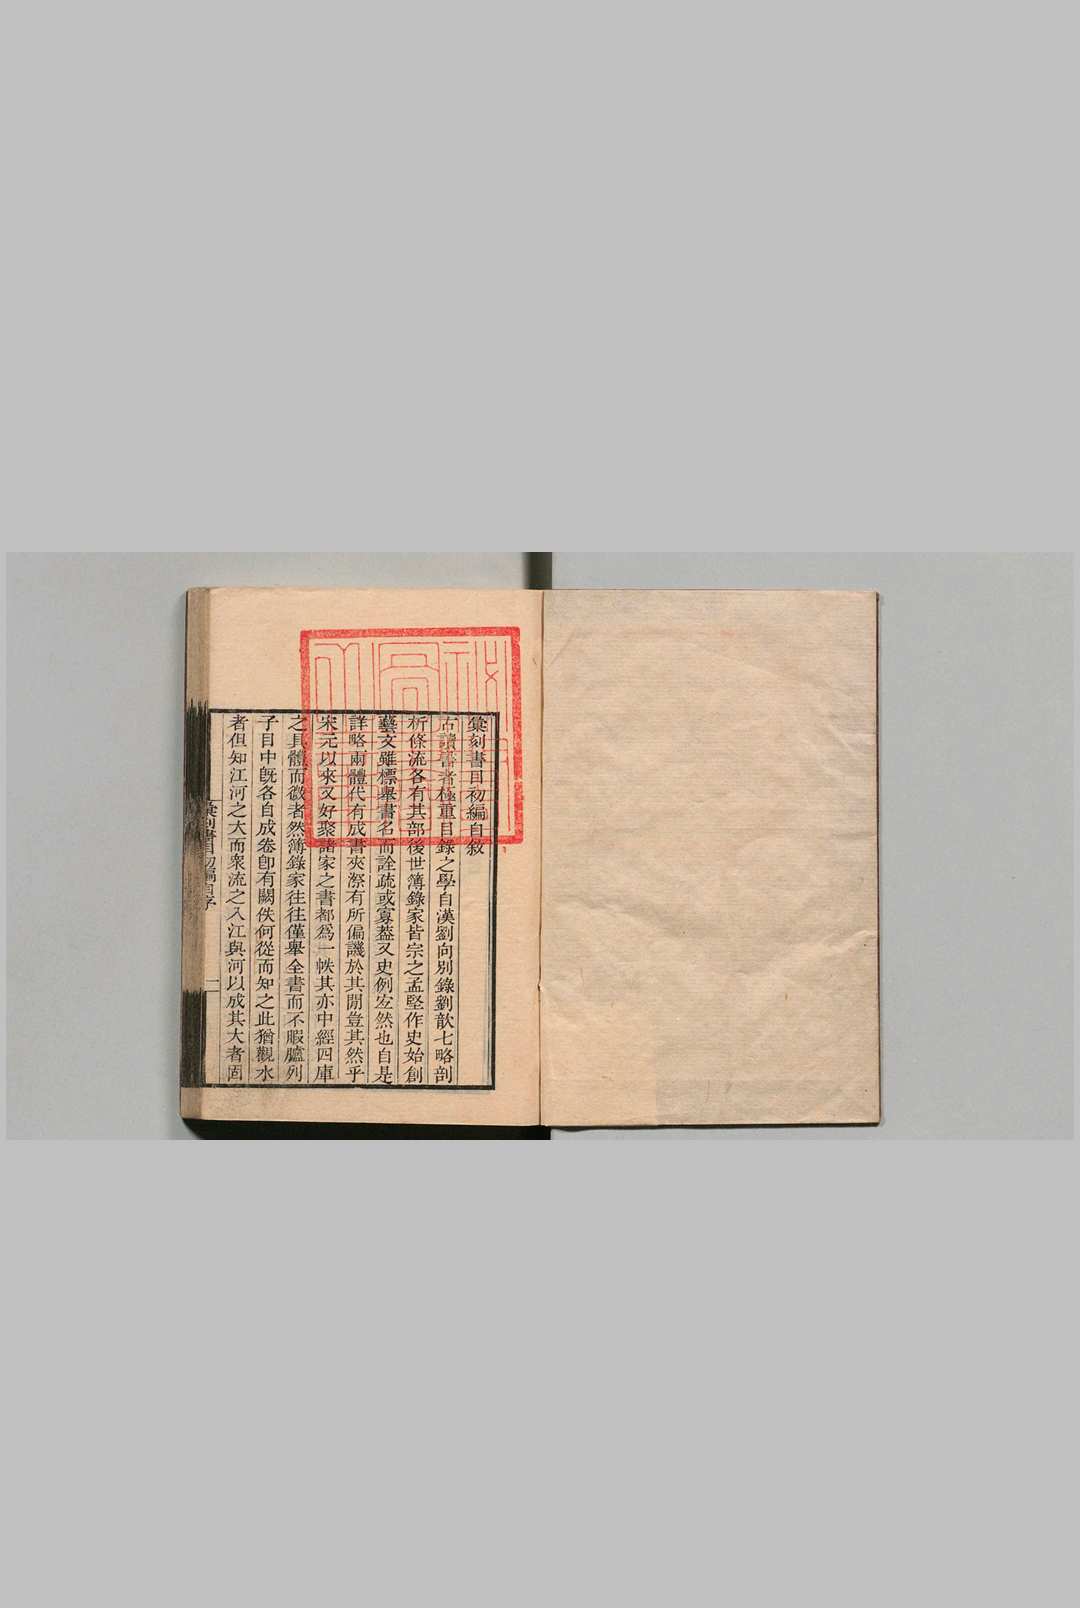 彙刻書目初編自敘
古讀書者極重目錄之學自漢劉向別錄劉歆七略剖
析條流各有其部後世簿錄家皆宗之孟堅作史始創
藝文雖標舉書名而詮疏或寡葢又史例宏然也自是
詳略兩體代有成書夾漈有所偏譏於其閒豈其然乎
宋元以來又好聚諸家之書都爲一帙其亦中經四庫
之具體而微者然簿錄家往往僅舉全書而不暇臚列
子目中旣各自成卷卽有闕佚何從而知之此猶觀水
者但知江河之大而衆流之入江與河以成其大者固
彙刻書目初編自序
一